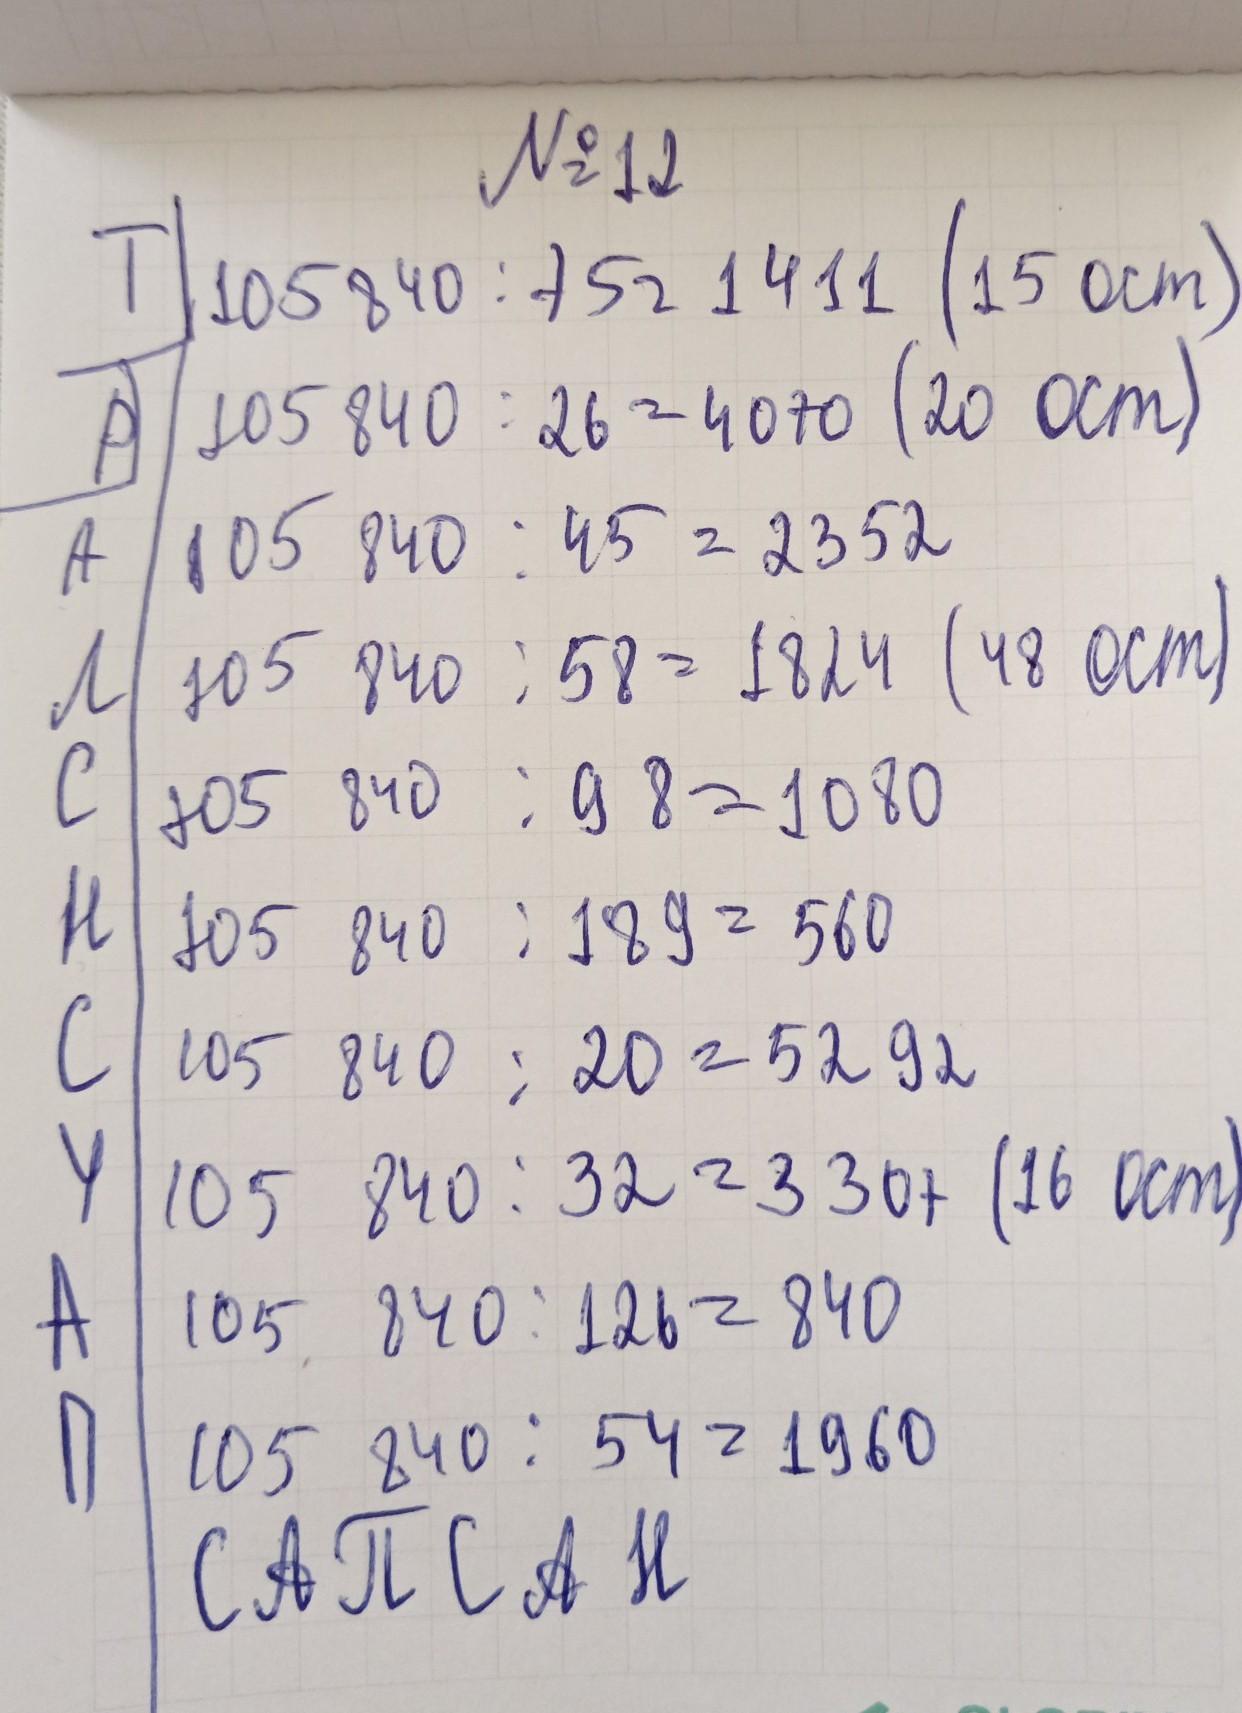 №12
Т 105 840 : 75 = 1411 (15 ост)
Р 105 840 : 26 = 4070 (20 ост)
А 105 840 : 45 = 2352
Л 105 840 : 58 = 1824 (48 ост)
С 105 840 : 98 = 1080
Н 105 840 : 189 = 560
С 105 840 : 20 = 5292
У 105 840 : 32 = 3307 (16 ост)
А 105 840 : 126 = 840
П 105 840 : 54 = 1960
САПСАН